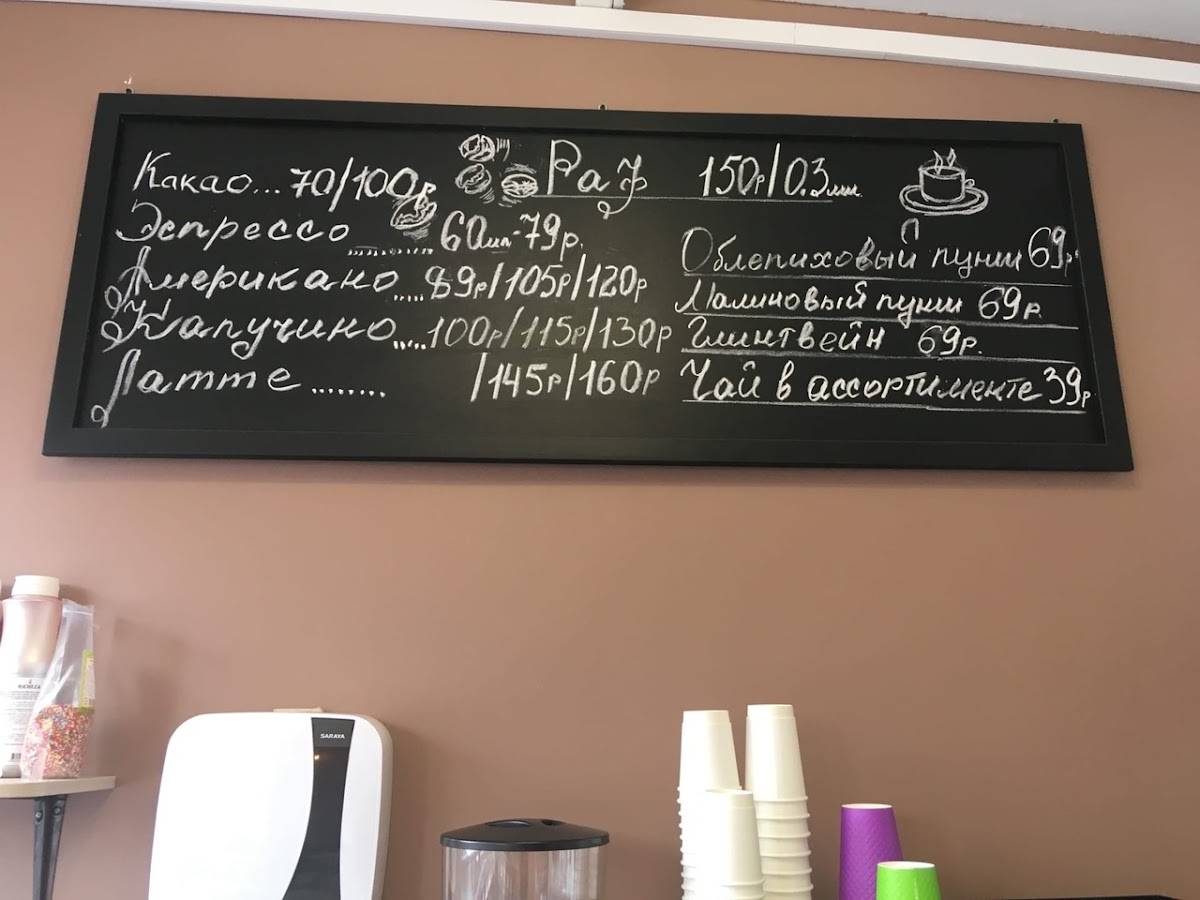 Какао... 70/100р
Эспрессо ......... 60мл-79р.
Американо ..... 89р/105р/120р
Капучино ..... 100р/115р/130р
Латте ........ /145р/160р
Раф 150р/0.3мл
Облепиховый пунш 69р
Малиновый пунш 69р.
Глинтвейн 69р.
Чай в ассортименте 39р
SARAYA